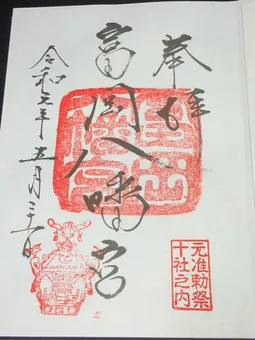 奉拝
富岡八幡宮
令和元年五月二十一日
元准勅祭
十社之内